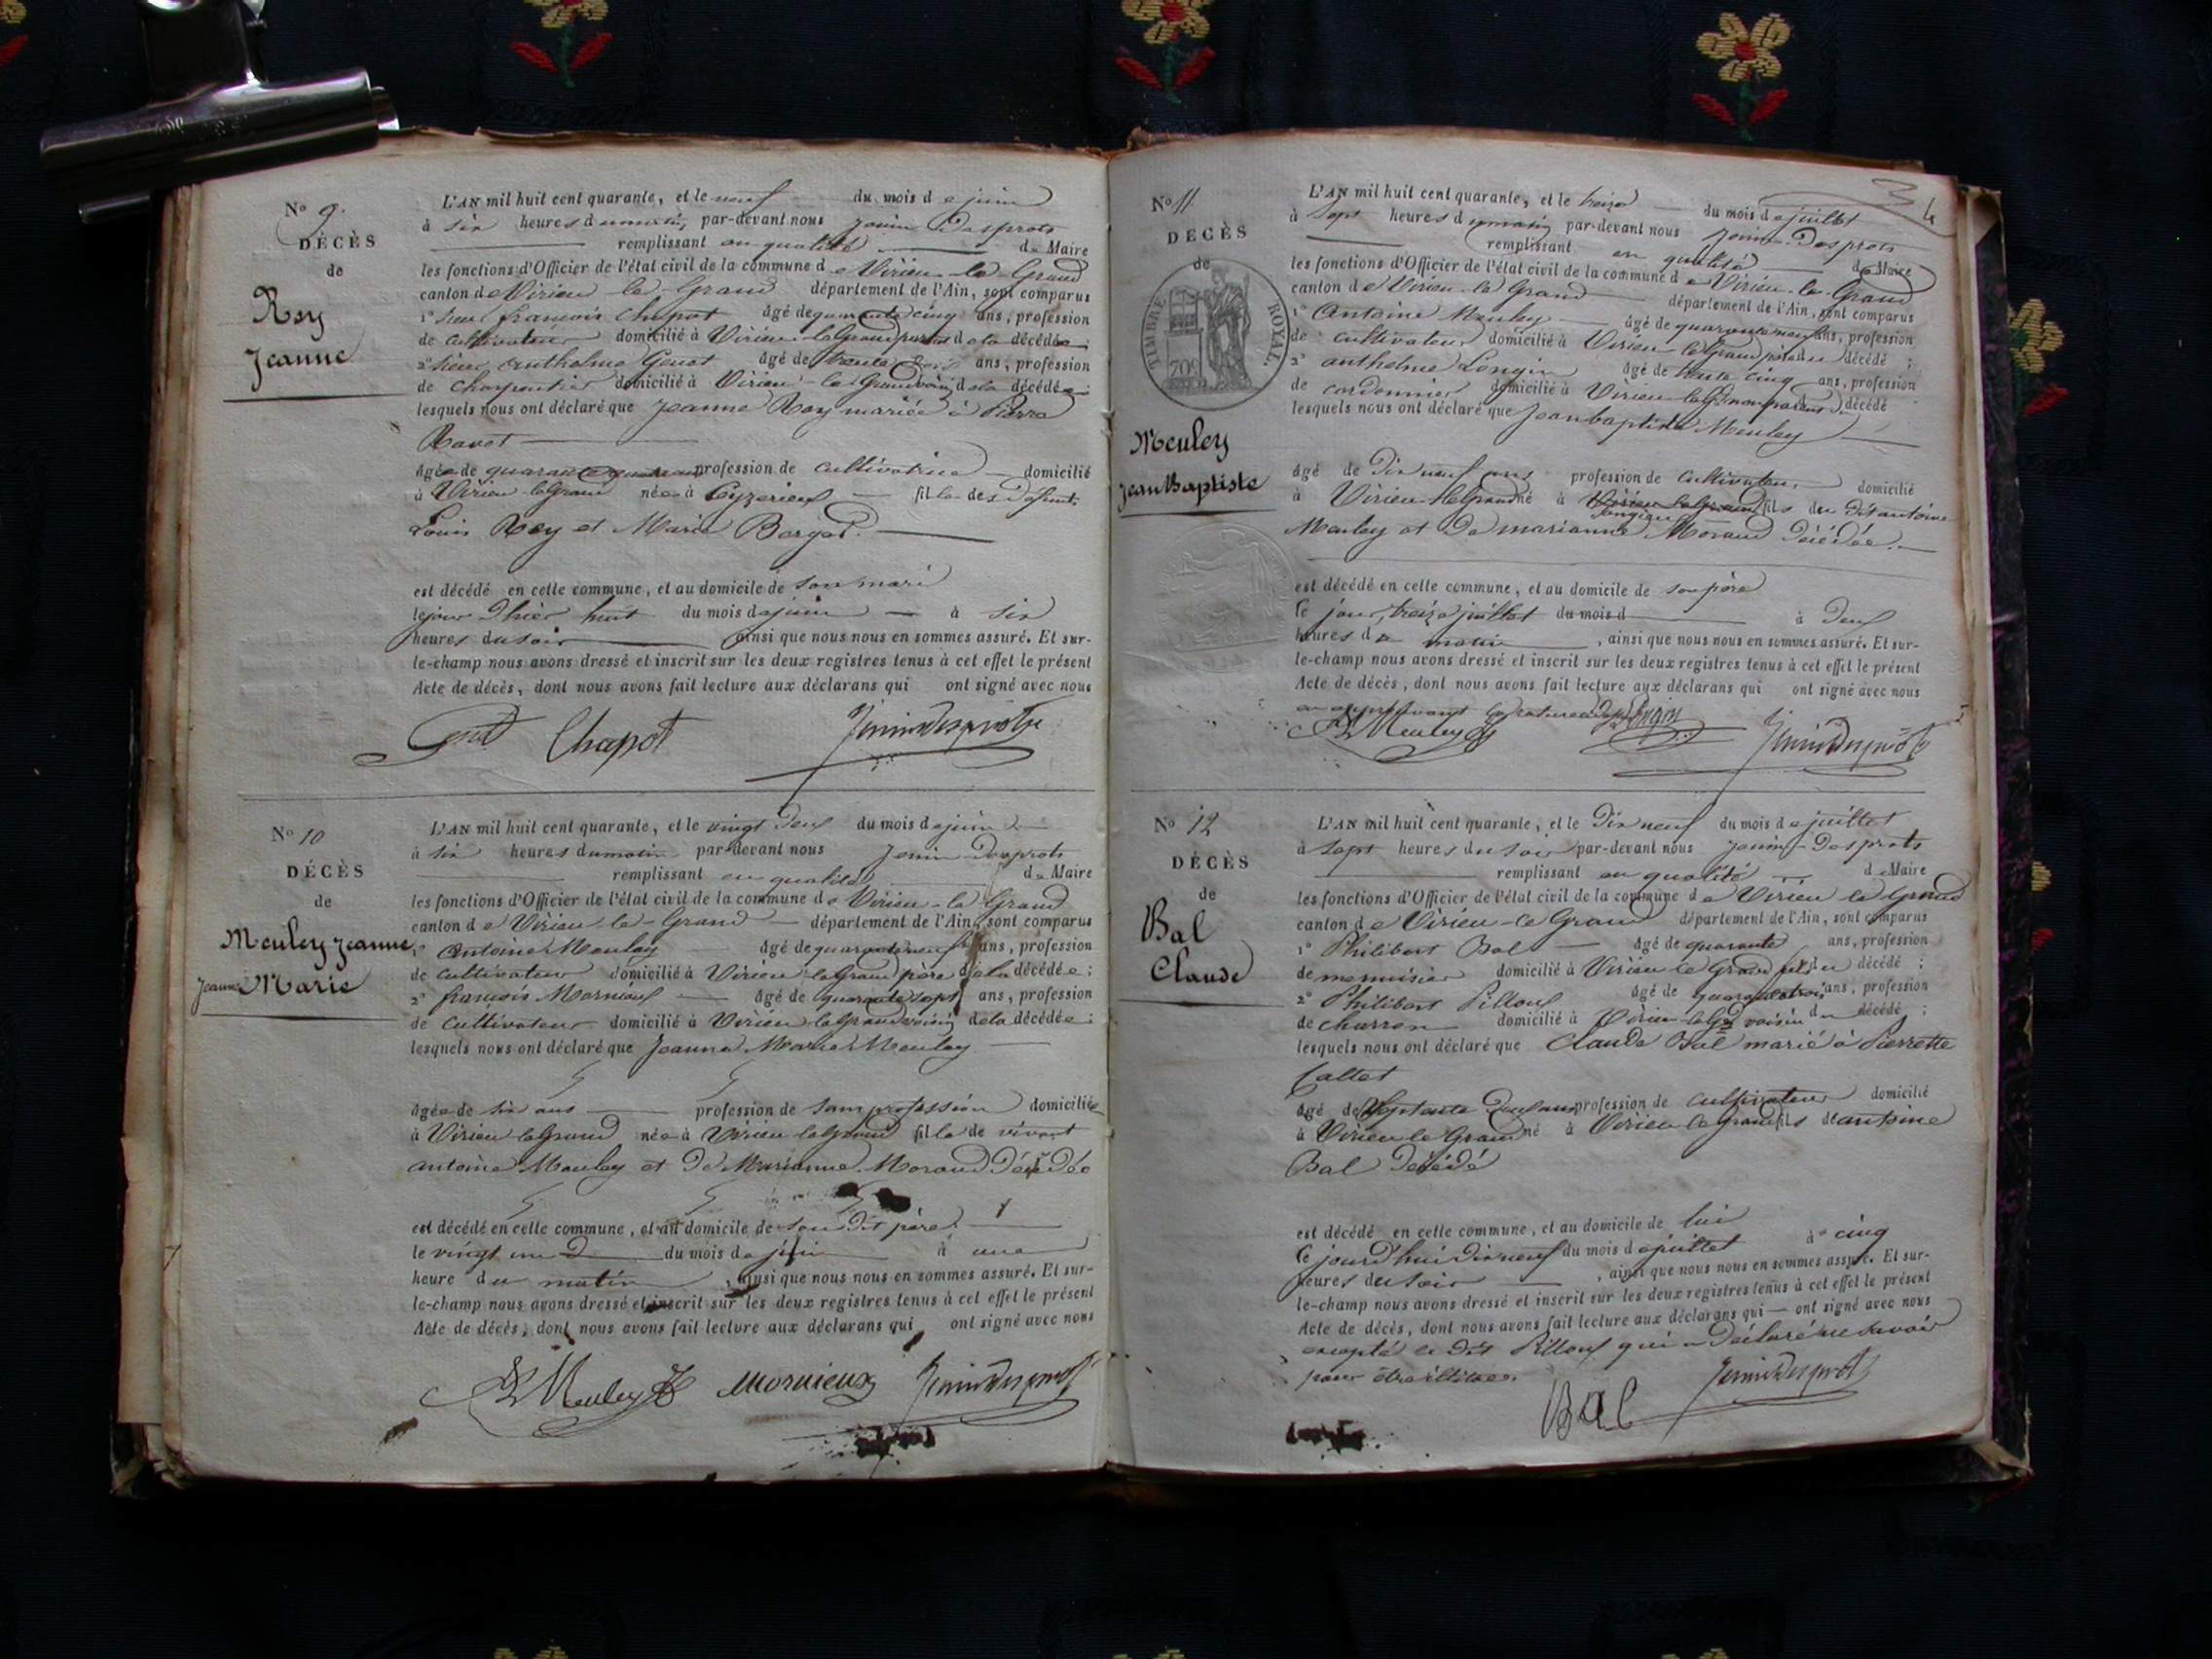 No 9.
DÉCÈS
de
Rey
Jeanne
L'AN mil huit cent quarante, et le neuf du mois de juin
à six heures du matin, par-devant nous Jenin Desprots
remplissant en qualité de Maire
les fonctions d'Officier de l'état civil de la commune de Virieu-le-Grand
canton de Virieu le Grand département de l'Ain, sont comparus
1° sieur françois Chapot âgé de quarante cinq ans, profession
de cultivateur domicilié à Virieu-le Grand de la décédée;
2° sieur Anthelme Genot âgé de trente trois ans, profession
de charpentier domicilié à Virieu-le-Grand voisin de la décédée;
lesquels nous ont déclaré que Jeanne Rey mariée à Pierre
Ravet
âgée de quarante profession de cultivatrice domicilié
à Virieu-le Grand née à Ceyzerieu fille des défunts
Louis Rey et Marie Berget.
est décédé en cette commune, et au domicile de son mari
le jour d'hier huit du mois de juin à six
heures du soir ainsi que nous nous en sommes assuré. Et sur-
le-champ nous avons dressé et inscrit sur les deux registres tenus à cet effet le présent
Acte de décès, dont nous avons fait lecture aux déclarans qui ont signé avec nous
Chapot Jenin Desprots
No 10
DÉCÈS
de
Meuley Jeanne
Jeanne Marie
L'AN mil huit cent quarante, et le vingt deux du mois de juin
à six heures du matin par-devant nous Jenin Desprots
remplissant en qualité de Maire
les fonctions d'Officier de l'état civil de la commune de Virieu-le Grand
canton de Virieu-le-Grand département de l'Ain, sont comparus
1° Antoine Meuley âgé de quarante neuf ans, profession
de cultivateur domicilié à Virieu-le Grand père de la décédée;
2° françois Mornieux âgé de quarante sept ans, profession
de cultivateur domicilié à Virieu-le Grand voisin de la décédée;
lesquels nous ont déclaré que Jeanne Marie Meuley
âgée de six ans profession de sans profession domiciliée
à Virieu le Grand née à Virieu-le Grand fille de vivant
antoine Meuley et de Marianne Moraud décédée
est décédé en cette commune, et au domicile de son dit père.
le vingt un du mois de juin à une
heure du matin, ainsi que nous nous en sommes assuré. Et sur-
le-champ nous avons dressé et inscrit sur les deux registres tenus à cet effet le présent
Acte de décès, dont nous avons fait lecture aux déclarans qui ont signé avec nous
Meuley Mornieux Jenin Desprots
No 11
DÉCÈS
de
TIMBRE ROYAL.
709
Meuley
Jean Baptiste
L'AN mil huit cent quarante, et le treize du mois de juillet
à sept heures du matin par-devant nous Jenin-Desprots
remplissant en qualité de Maire
les fonctions d'Officier de l'état civil de la commune de Virieu-le-Grand
canton de Virieu-le Grand département de l'Ain, sont comparus
1° Antoine Meuley âgé de quarante neuf ans, profession
de cultivateur domicilié à Virieu-le Grand père du décédé;
2° anthelme Longin âgé de trente cinq ans, profession
de cordonnier domicilié à Virieu-le Gd non parent du décédé
lesquels nous ont déclaré que Jean baptiste Meuley
âgé de dix neuf ans profession de cultivateur domicilié
à Virieu-le Grand né à Virieu le Grand fils du dit antoine
Meuley et de marianne Moraud décédée.
est décédé en cette commune, et au domicile de son père
le jour, treize juillet du mois d à deux
heures du matin, ainsi que nous nous en sommes assuré. Et sur-
le-champ nous avons dressé et inscrit sur les deux registres tenus à cet effet le présent
Acte de décès, dont nous avons fait lecture aux déclarans qui ont signé avec nous
en approuvant
Meuley Longin Jenin Desprots
No 12
DÉCÈS
de
Bal
Claude
L'AN mil huit cent quarante, et le dix neuf du mois de juillet
à sept heures du soir par-devant nous Jenin-Desprots
remplissant en qualité de Maire
les fonctions d'Officier de l'état civil de la commune de Virieu le Grand
canton de Virieu-le Grand département de l'Ain, sont comparus
1° Philibert Bal âgé de quarante ans, profession
de menuisier domicilié à Virieu le Grand fils du décédé;
2° Philibert Pilloux âgé de quarante trois ans, profession
de charron domicilié à Virieu-le Gd voisin du décédé;
lesquels nous ont déclaré que Claude Bal marié à Pierrette
Callet
âgé de septante deux ans profession de cultivateur domicilié
à Virieu le Grand né à Virieu-le Grand fils de antoine
Bal décédé
est décédé en cette commune, et au domicile de lui
le jourd'hui dix neuf du mois de juillet à cinq
heures du soir, ainsi que nous nous en sommes assuré. Et sur-
le-champ nous avons dressé et inscrit sur les deux registres tenus à cet effet le présent
Acte de décès, dont nous avons fait lecture aux déclarans qui ont signé avec nous
excepté le dit Pilloux qui a déclaré ne savoir
pour être illitéré.
Bal Jenin Desprots